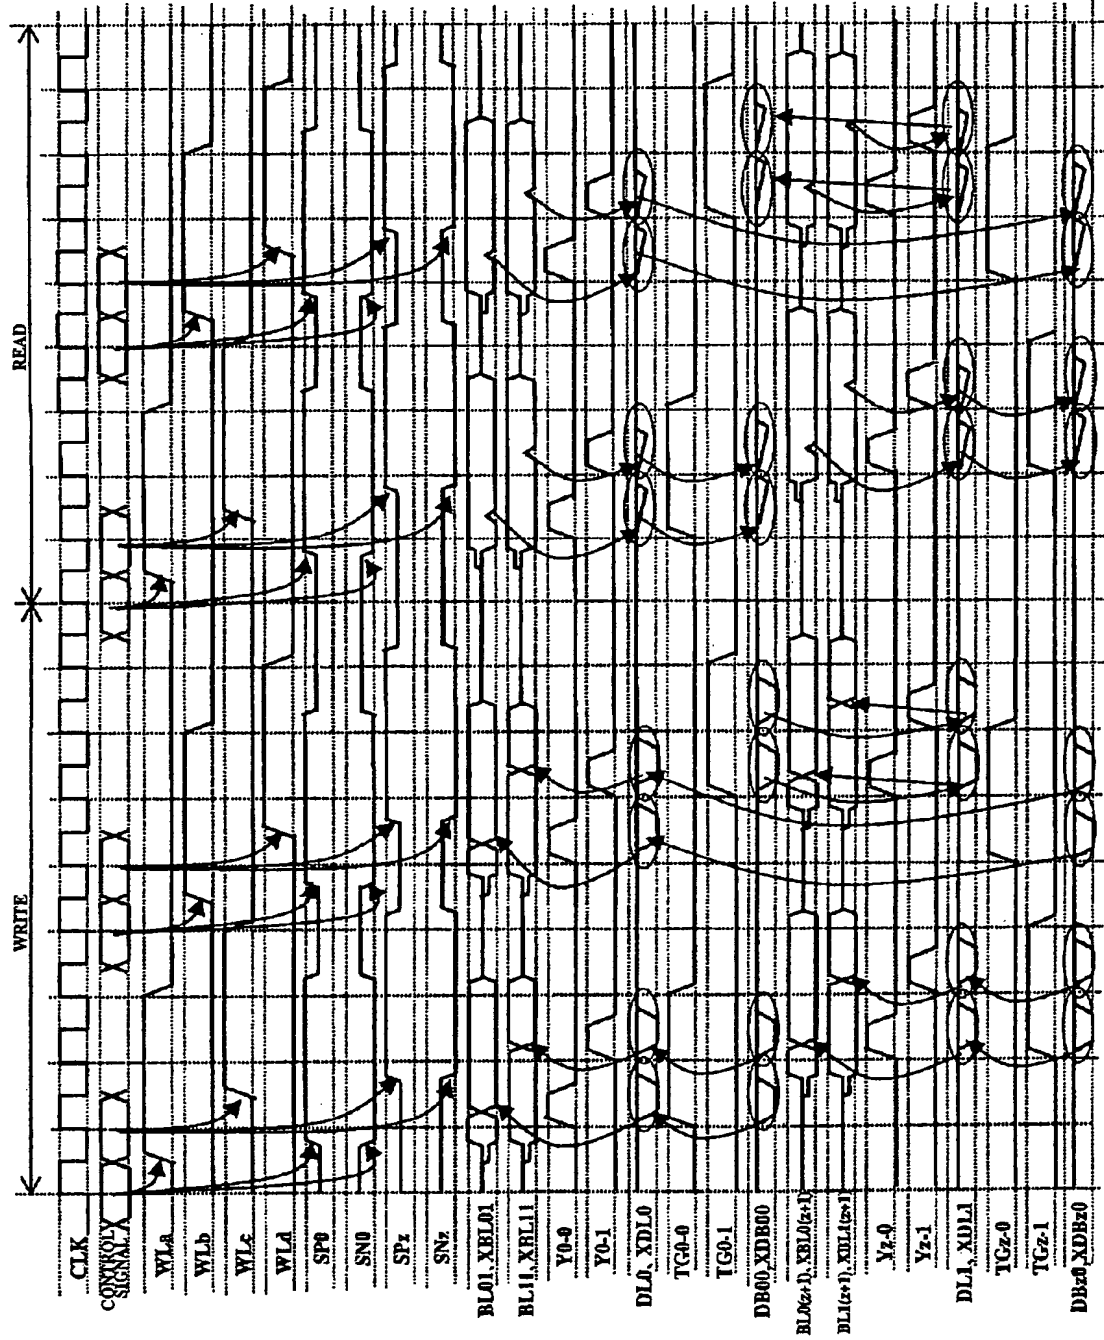 WRITE
READ
CLK
CONTROL
SIGNAL
WLa
WLb
WLc
WLd
SP0
SN0
SPz
SNz
BL01, XBL01
BL11, XBL11
Y0-0
Y0-1
DL0, XDL0
TG0-0
TG0-1
DB00, XDB00
BL0(z+1), XBL0(z+1)
BL1(z+1), XBL1(z+1)
Yz-0
Yz-1
DL1, XDL1
TGz-0
TGz-1
DBz0, XDBz0